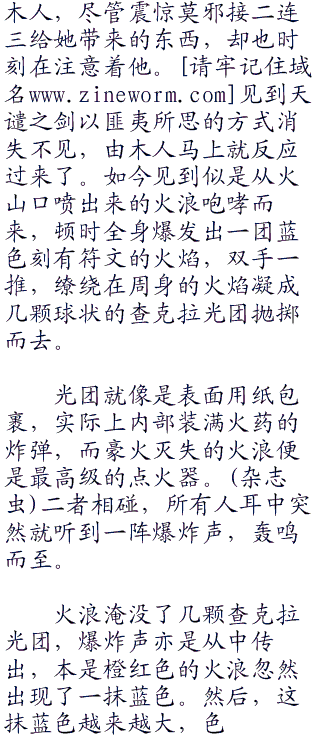 木人，尽管震惊莫邪接二连
三给她带来的东西，却也时
刻在注意着他。[请牢记住域
名www.zineworm.com]见到天
谴之剑以匪夷所思的方式消
失不见，由木人马上就反应
过来了。如今见到似是从火
山口喷出来的火浪咆哮而
来，顿时全身爆发出一团蓝
色刻有符文的火焰，双手一
推，缭绕在周身的火焰凝成
几颗球状的查克拉光团抛掷
而去。
光团就像是表面用纸包
裹，实际上内部装满火药的
炸弹，而豪火灭失的火浪便
是最高级的点火器。(杂志
虫)二者相碰，所有人耳中突
然就听到一阵爆炸声，轰鸣
而至。
火浪淹没了几颗查克拉
光团，爆炸声亦是从中传
出，本是橙红色的火浪忽然
出现了一抹蓝色。然后，这
抹蓝色越来越大，色